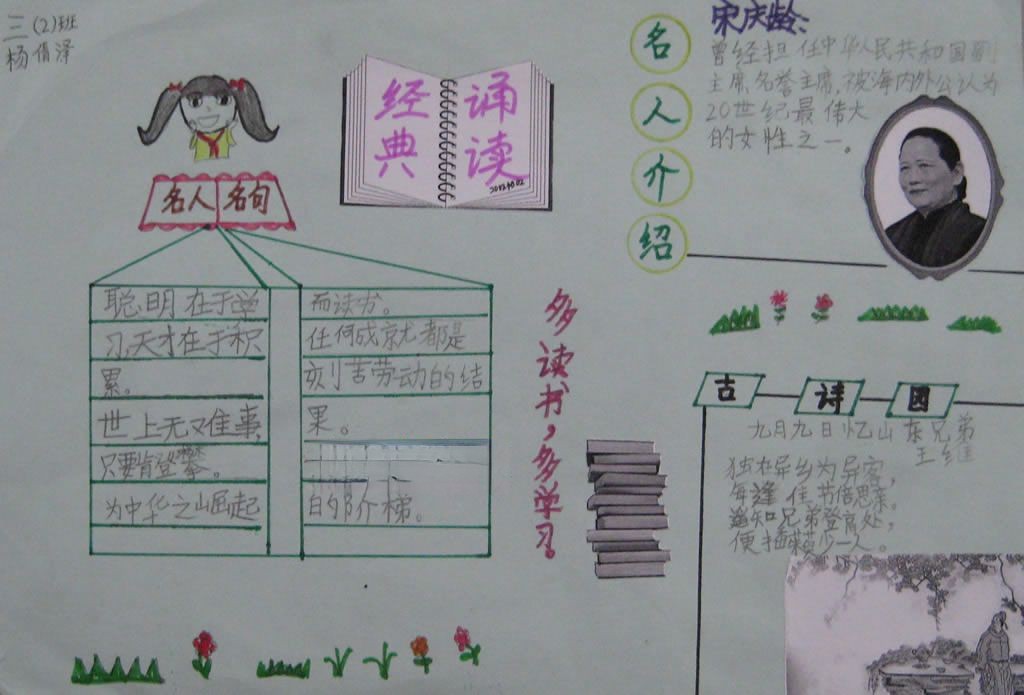 三(2)班
杨倩泽
经典
诵读
名人名句
聪明在于学
习,天才在于积
累。
世上无难事,
只要肯登攀。
为中华之崛起
而读书。
任何成就都是
刻苦劳动的结
果。
的阶梯。
多读书,多学习。
名人介绍
宋庆龄:
曾经担任中华人民共和国副
主席,名誉主席,被海内外公认为
20世纪最伟大
的女性之一。
古诗园
九月九日忆山东兄弟
王维
独在异乡为异客,
每逢佳节倍思亲。
遥知兄弟登高处,
便插茱萸少一人。